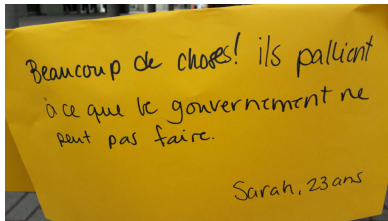 Beaucoup de choses! ils pallient
à ce que le gouvernement ne
peut pas faire.
Sarah, 23 ans